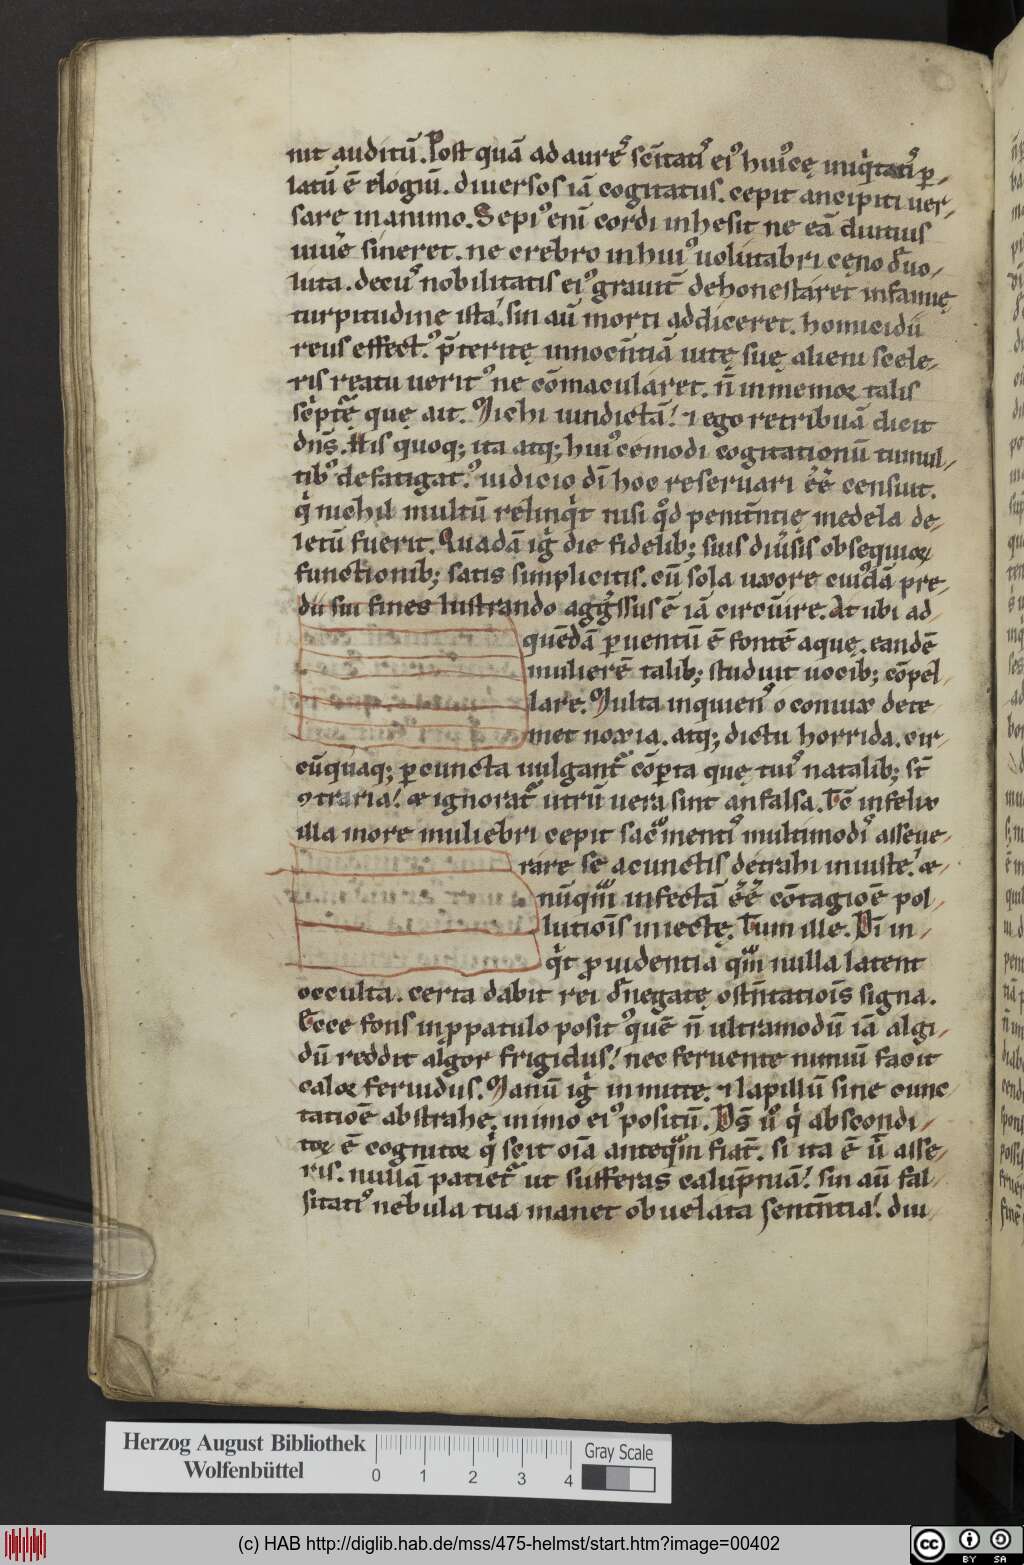 nit auditū. Post quā ad aurē scītatis ei' hui'cę iniq̇tatis ꝑ-
latū ē elogiū. diuersos iā cogitatus. cepit ancipiti uer-
sare in animo. Sepi' enī cordi inhesit ne eā diutius
uiuē sineret. ne crebro in hui' uolutabri cęno d'uo-
luta. decus nobilitatis ei' grauit̄ dehonestaret infamię
turpitudine ista! sin aū morti addiceret. homicidii
reus effect'. p̄teritę innocn̄tiā uitę suę alieni scele-
ris reatu uerit' ne cōmacularet. n̄ inmemor talis
sc̀ptę̄ quę ait. Michi uindictā! ⁊ ego retribuā dicit
dn̄s. His quoq; ita atq; hui'cemodi cogitationū tumul-
tib' defatigat'. iudicio dī hoc reseruari ee̅ censuit.
q̇ nichil multū relinq̇t nisi qd̊ penitn̄tię medela de-
letū fuerit. Quadā ig̊ die fidelib; suis diu̾sis obsequior
functionib; satis simplicitis. cū sola uxore cui'dā pre-
dii sui fines lustrando agg̊ssus ē iā circūire. At ubi ad
quēdā ꝑuentū ē fontē aquę. eandē
mulierē talib; studuit uocib; cōpel-
lare. Multa inquiens o coniux dete
met noxia. atq; dictu horrida. cir-
cūquaq; ꝑ cuncta uulgant̄ cōꝑta quę tuis natalib; st̄
ꝯtraria! & ignorat̄ utrū uera sint an falsa. Tc̄ infelix
illa more muliebri cepit sac̄mentis multimodis asseue-
rare se a cunctis detrahi iniuste! &
nūqm̄ infectā ee̅ cōtagioē pol-
lutiōis iniectę. Tum ille. Dī in-
q̇t ꝓuidentia qm̄ nulla latent
occulta. certa dabit rei d'negatę ostn̄tatiōis signa.
Ecce fons in ꝓpatulo posit' quē n̄ ultramodū iā algi-
dū reddit algor frigidus! nec feruente nimiū facit
calor feruidus. Manū ig̊ inmitte. ⁊ lapillū sine cunc
tatioē abstrahe. in imo ei' positū. Ds̄ u̾o q̇ abscondi-
tor ē cognitor q̇ scit oīa anteqm̄ fiat̄. si ita ē ūt asse-
ris. nullā patiet̄ ut sufferas calūpniā! sin aū fal-
sitatis nebula tua manet obuelata sentn̄tia! diu-
Herzog August Bibliothek
Wolfenbüttel
0 1 2 3 4
Gray Scale
(c) HAB http://diglib.hab.de/mss/475-helmst/start.htm?image=00402
cc BY SA